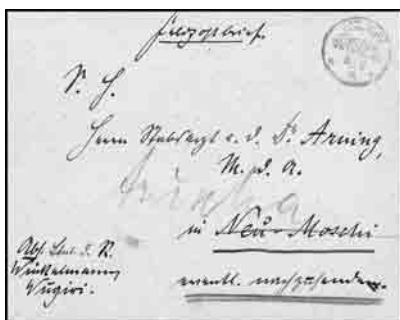 Feldpostbrief.
S. H.
Herrn Stabsarzt a. D. Dr Arning,
M. d. R.
in Neu-Moschi
eventl. nachzusenden.
Abs. Lnt. d. R.
Winkelmann,
Wugiri.